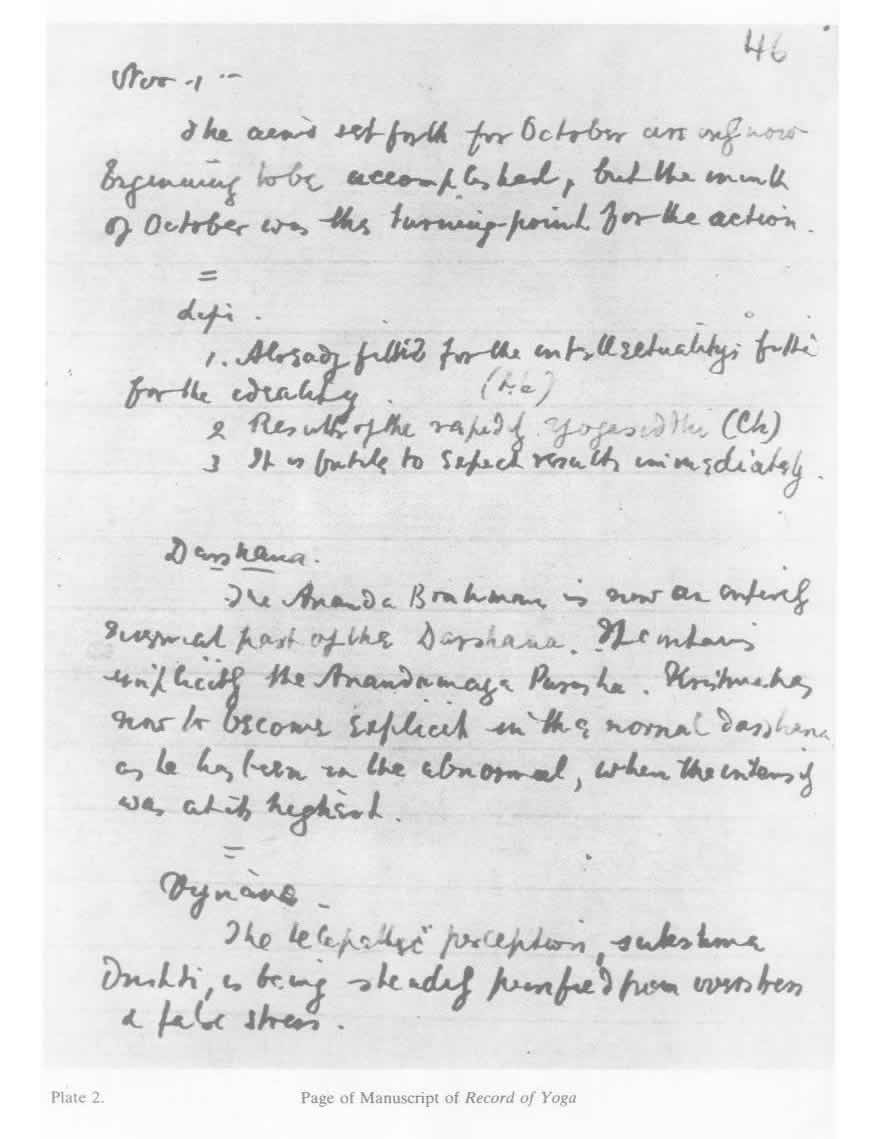 46
Nov 1 –
The aims set forth for October are only now
beginning to be accomplished, but the month
of October was the turning-point for the action.
=
Lipi.
1. Already fulfilled for the intellectuality; futile
for the ideality
2 Results of the rapidity. Yogasiddhi (Ch)
3 It is futile to expect results immediately.
Darshana.
The Ananda Brahman is now an entirely
normal part of the Darshana. It contains
implicitly the Anandamaya Purusha. Krishna has
now to become explicit in the normal darshana
as he has been in the abnormal, when the intensity
was at its highest.
=
Vijnana –
The telepathic perception, sukshma
Drishti, is being steadily purified from overstress
& false stress.
Plate 2.
Page of Manuscript of Record of Yoga